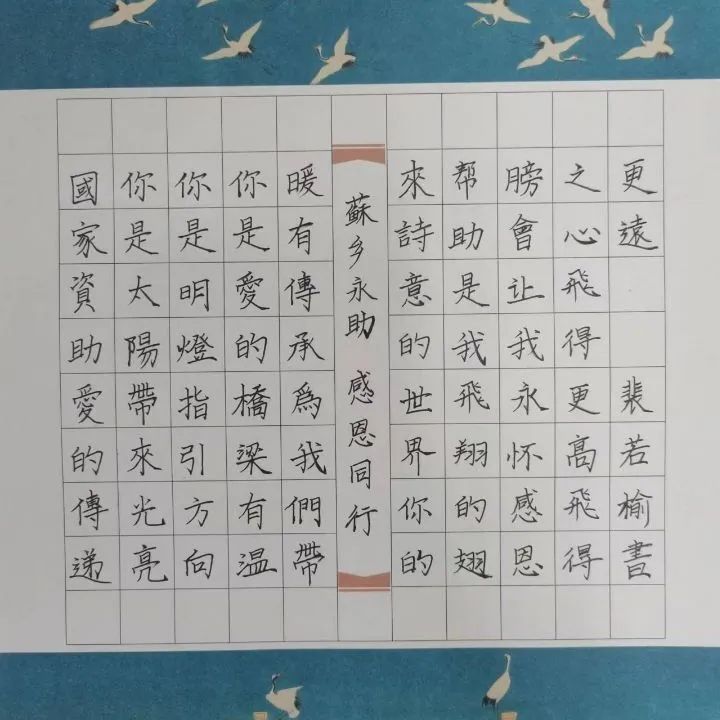 國家資助愛的傳递
你是太陽帶來光亮
你是明燈指引方向
你是愛的橋梁有温
暖有傳承為我們帶
蘇乡永助 感恩同行
來詩意的世界你的
帮助是我飛翔的翅
膀會让我永怀感恩
之心飛得更高飛得
更遠 裴若榆書